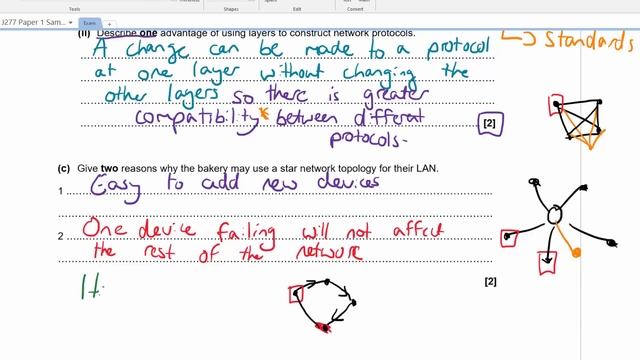 Tools
Shapes
Convert
J277 Paper 1 Sam...
Exam
(ii) Describe one advantage of using layers to construct network protocols.
A change can be made to a protocol
at one layer without changing the
other layers so there is greater
compatibility between different
protocols.
[2]
→ Standards
(c) Give two reasons why the bakery may use a star network topology for their LAN.
1 Easy to add new devices
2 One device failing will not affect
the rest of the network
[2]